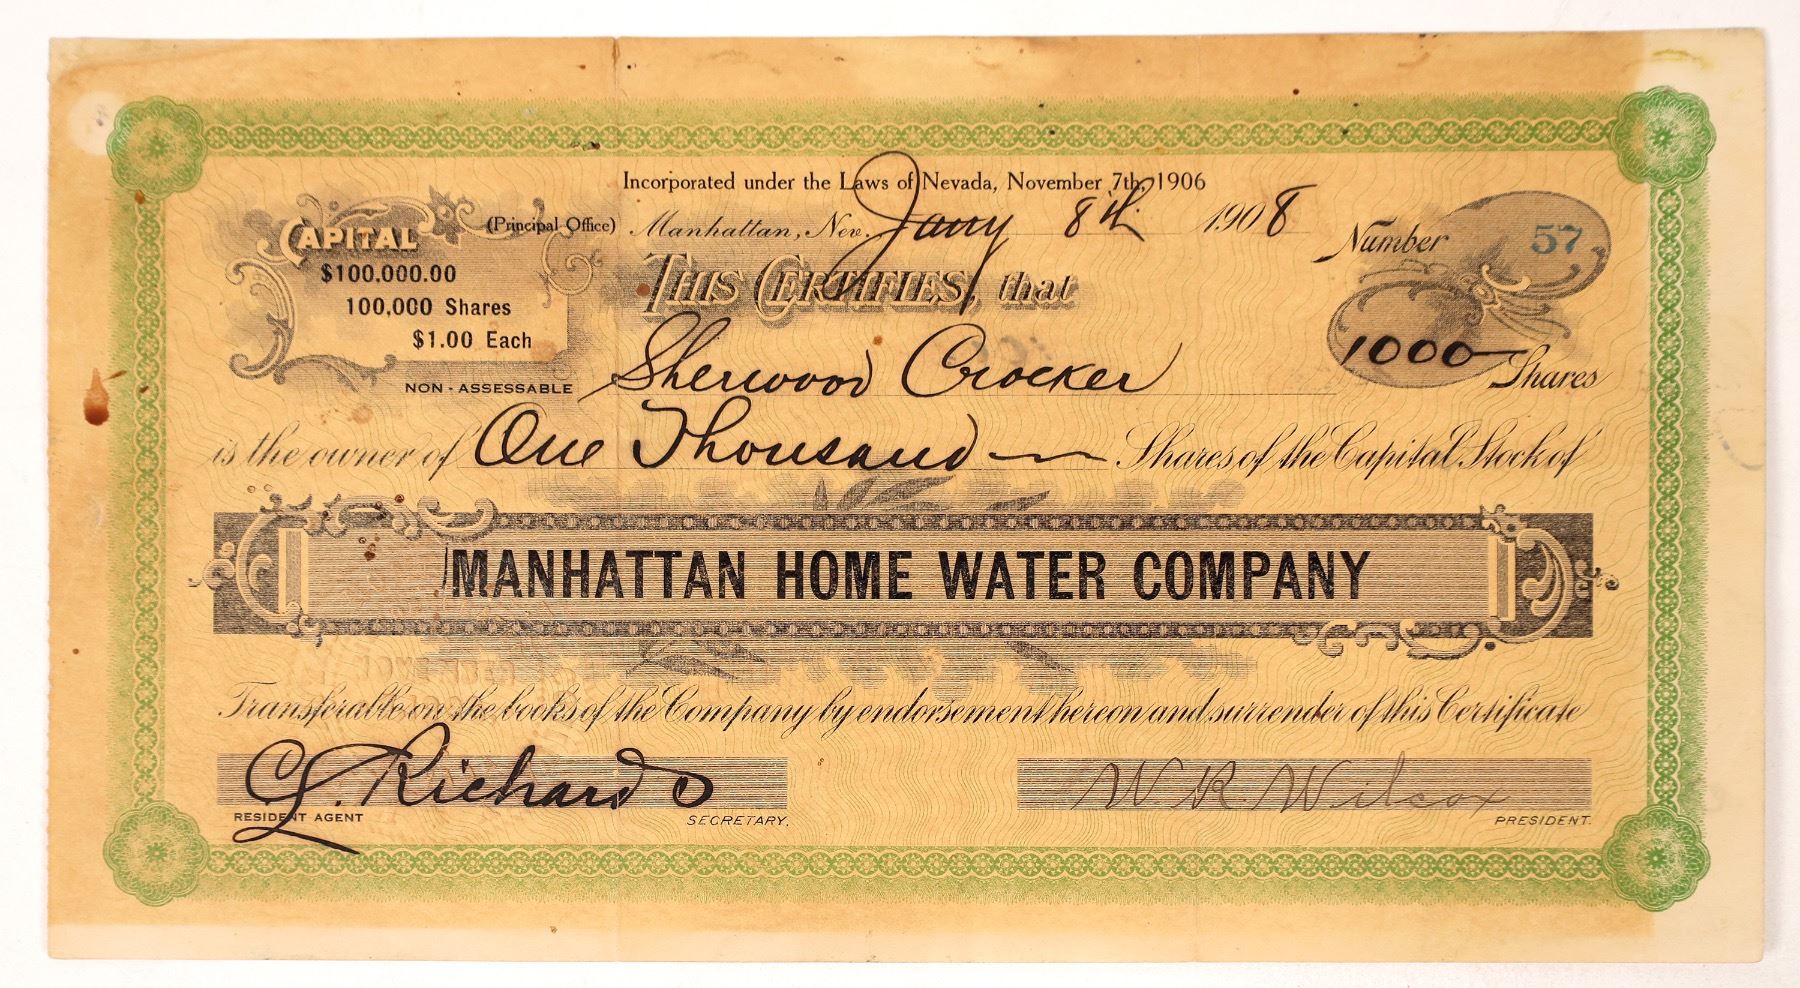 Incorporated under the Laws of Nevada, November 7th, 1906
CAPITAL
$100,000.00
100,000 Shares
$1.00 Each
NON-ASSESSABLE
(Principal Office) Manhattan, Nev. Jany 8th 1908
Number 57
THIS CERTIFIES, that
1000 Shares
Sherwood Crocker
is the owner of One Thousand Shares of the Capital Stock of
MANHATTAN HOME WATER COMPANY
Transferable on the books of the Company by endorsement hereon and surrender of this Certificate
C L. Richards
W. R. Wilcox
RESIDENT AGENT SECRETARY. PRESIDENT.